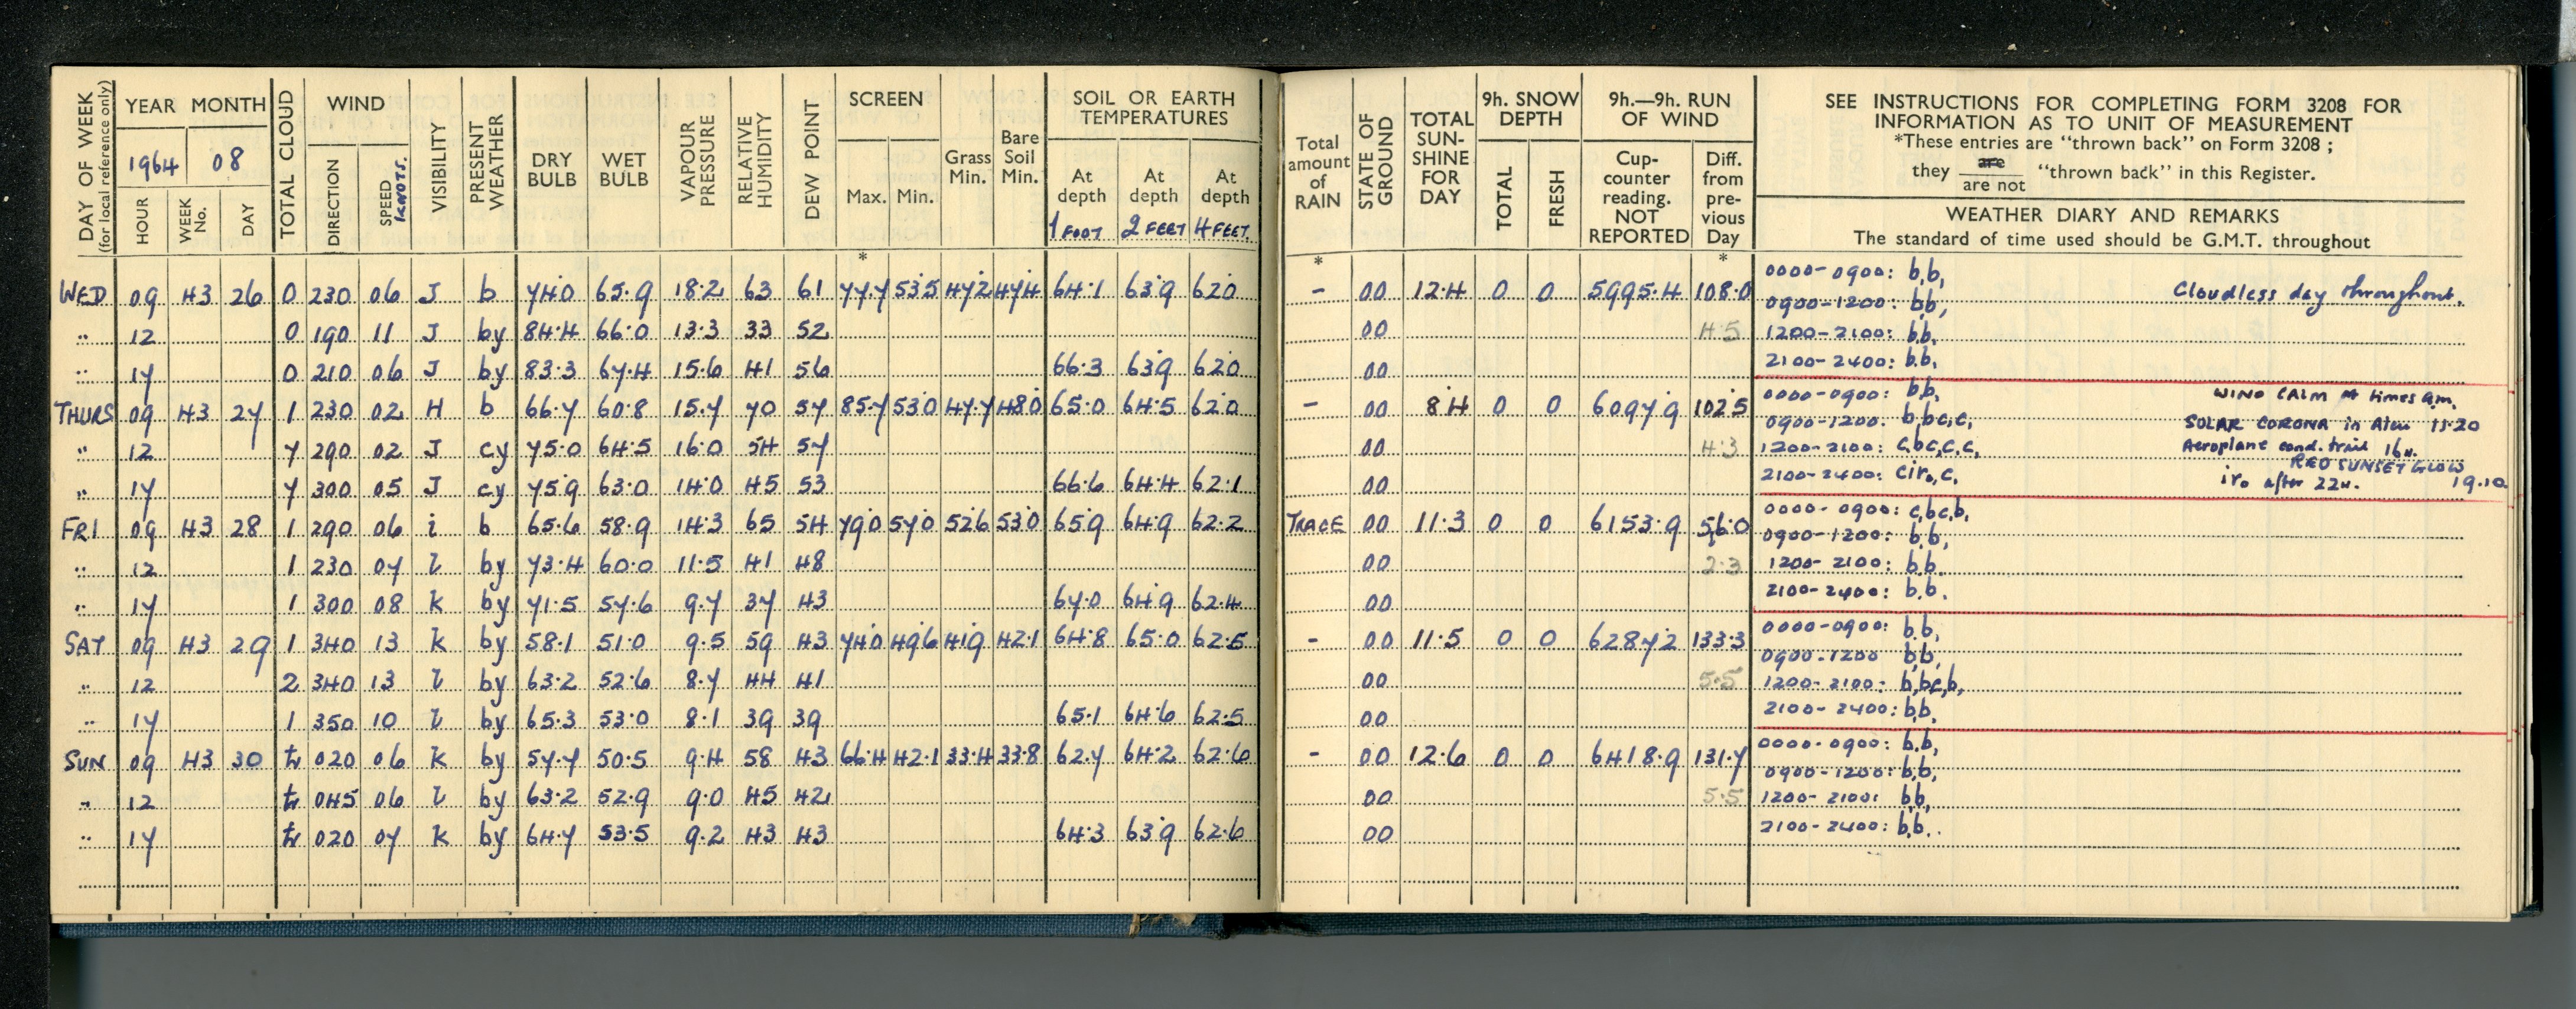 DAY OF WEEK (for local reference only)
YEAR MONTH
1964 08
HOUR WEEK No. DAY
TOTAL CLOUD
WIND
DIRECTION SPEED KNOTS.
VISIBILITY
PRESENT WEATHER
DRY BULB
WET BULB
VAPOUR PRESSURE
RELATIVE HUMIDITY
DEW POINT
SCREEN
Max. Min.
*
Grass Min.
Bare Soil Min.
SOIL OR EARTH TEMPERATURES
At depth At depth At depth
1 FOOT 2 FEET 4 FEET.
WED 09 43 26 0 230 06 J b 74.0 65.9 18.2 63 61 77.7 53.5 47.2 47.4 64.1 63.9 62.0
" 12 0 190 11 J by 84.4 66.0 13.3 33 52
" 17 0 210 06 J by 83.3 67.4 15.6 41 56 66.3 63.9 62.0
THURS 09 43 27 1 230 02 H b 66.7 60.8 15.7 70 57 85.7 53.0 47.7 48.0 65.0 64.5 62.0
" 12 7 290 02 J cy 75.0 64.5 16.0 54 57
" 17 7 300 05 J cy 75.9 63.0 14.0 45 53 66.6 64.4 62.1
FRI 09 43 28 1 290 06 i b 65.6 58.9 14.3 65 54 79.0 57.0 52.6 53.0 65.9 64.9 62.2
" 12 1 230 07 l by 73.4 60.0 11.5 41 48
" 17 1 300 08 k by 71.5 57.6 9.7 37 43 67.0 64.9 62.4
SAT 09 43 29 1 340 13 k by 58.1 51.0 9.5 59 43 74.0 49.6 41.9 42.1 64.8 65.0 62.5
" 12 2 340 13 l by 63.2 52.6 8.7 44 41
" 17 1 350 10 l by 65.3 53.0 8.1 39 39 65.1 64.6 62.5
SUN 09 43 30 tr 020 06 k by 57.7 50.5 9.4 58 43 66.4 42.1 33.4 33.8 62.7 64.2 62.6
" 12 tr 045 06 l by 63.2 52.9 9.0 45 42
" 17 tr 020 07 k by 64.7 53.5 9.2 43 43 64.3 63.9 62.6
Total amount of RAIN
*
STATE OF GROUND
TOTAL SUN-SHINE FOR DAY
9h. SNOW DEPTH
TOTAL FRESH
9h.—9h. RUN OF WIND
Cup-counter reading. NOT REPORTED
Diff. from pre-vious Day
*
SEE INSTRUCTIONS FOR COMPLETING FORM 3208 FOR
INFORMATION AS TO UNIT OF MEASUREMENT
*These entries are "thrown back" on Form 3208 ;
they are / are not "thrown back" in this Register.
WEATHER DIARY AND REMARKS
The standard of time used should be G.M.T. throughout
- 00 12.4 0 0 5995.4 108.0
0000-0900: b,b, Cloudless day throughout.
0900-1200: b,b,
00 4.5 1200-2100: b,b,
00 2100-2400: b,b,
- 00 8.4 0 0 6097.9 102.5
0000-0900: b,b, WIND CALM at times a.m.
0900-1200: b,bc,c, SOLAR CORONA in 11.20
00 4.3 1200-2100: c,bc,c,c, Aeroplane cond. trail 16H.
RED SUNSET GLOW 19.10
00 2100-2400: c,iro,c. iro after 22H.
TRACE 00 11.3 0 0 6153.9 56.0
0000-0900: c,bc,b,
0900-1200: b,b,
00 2.3 1200-2100: b,b,
00 2100-2400: b,b.
- 00 11.5 0 0 6287.2 133.3
0000-0900: b,b,
0900-1200 b,b,
00 5.5 1200-2100: b,bc,b,
00 2100-2400: b,b,
- 00 12.6 0 0 6418.9 131.7
0000-0900: b,b,
0900-1200: b,b,
00 5.5 1200-2100: b,b,
00 2100-2400: b,b.